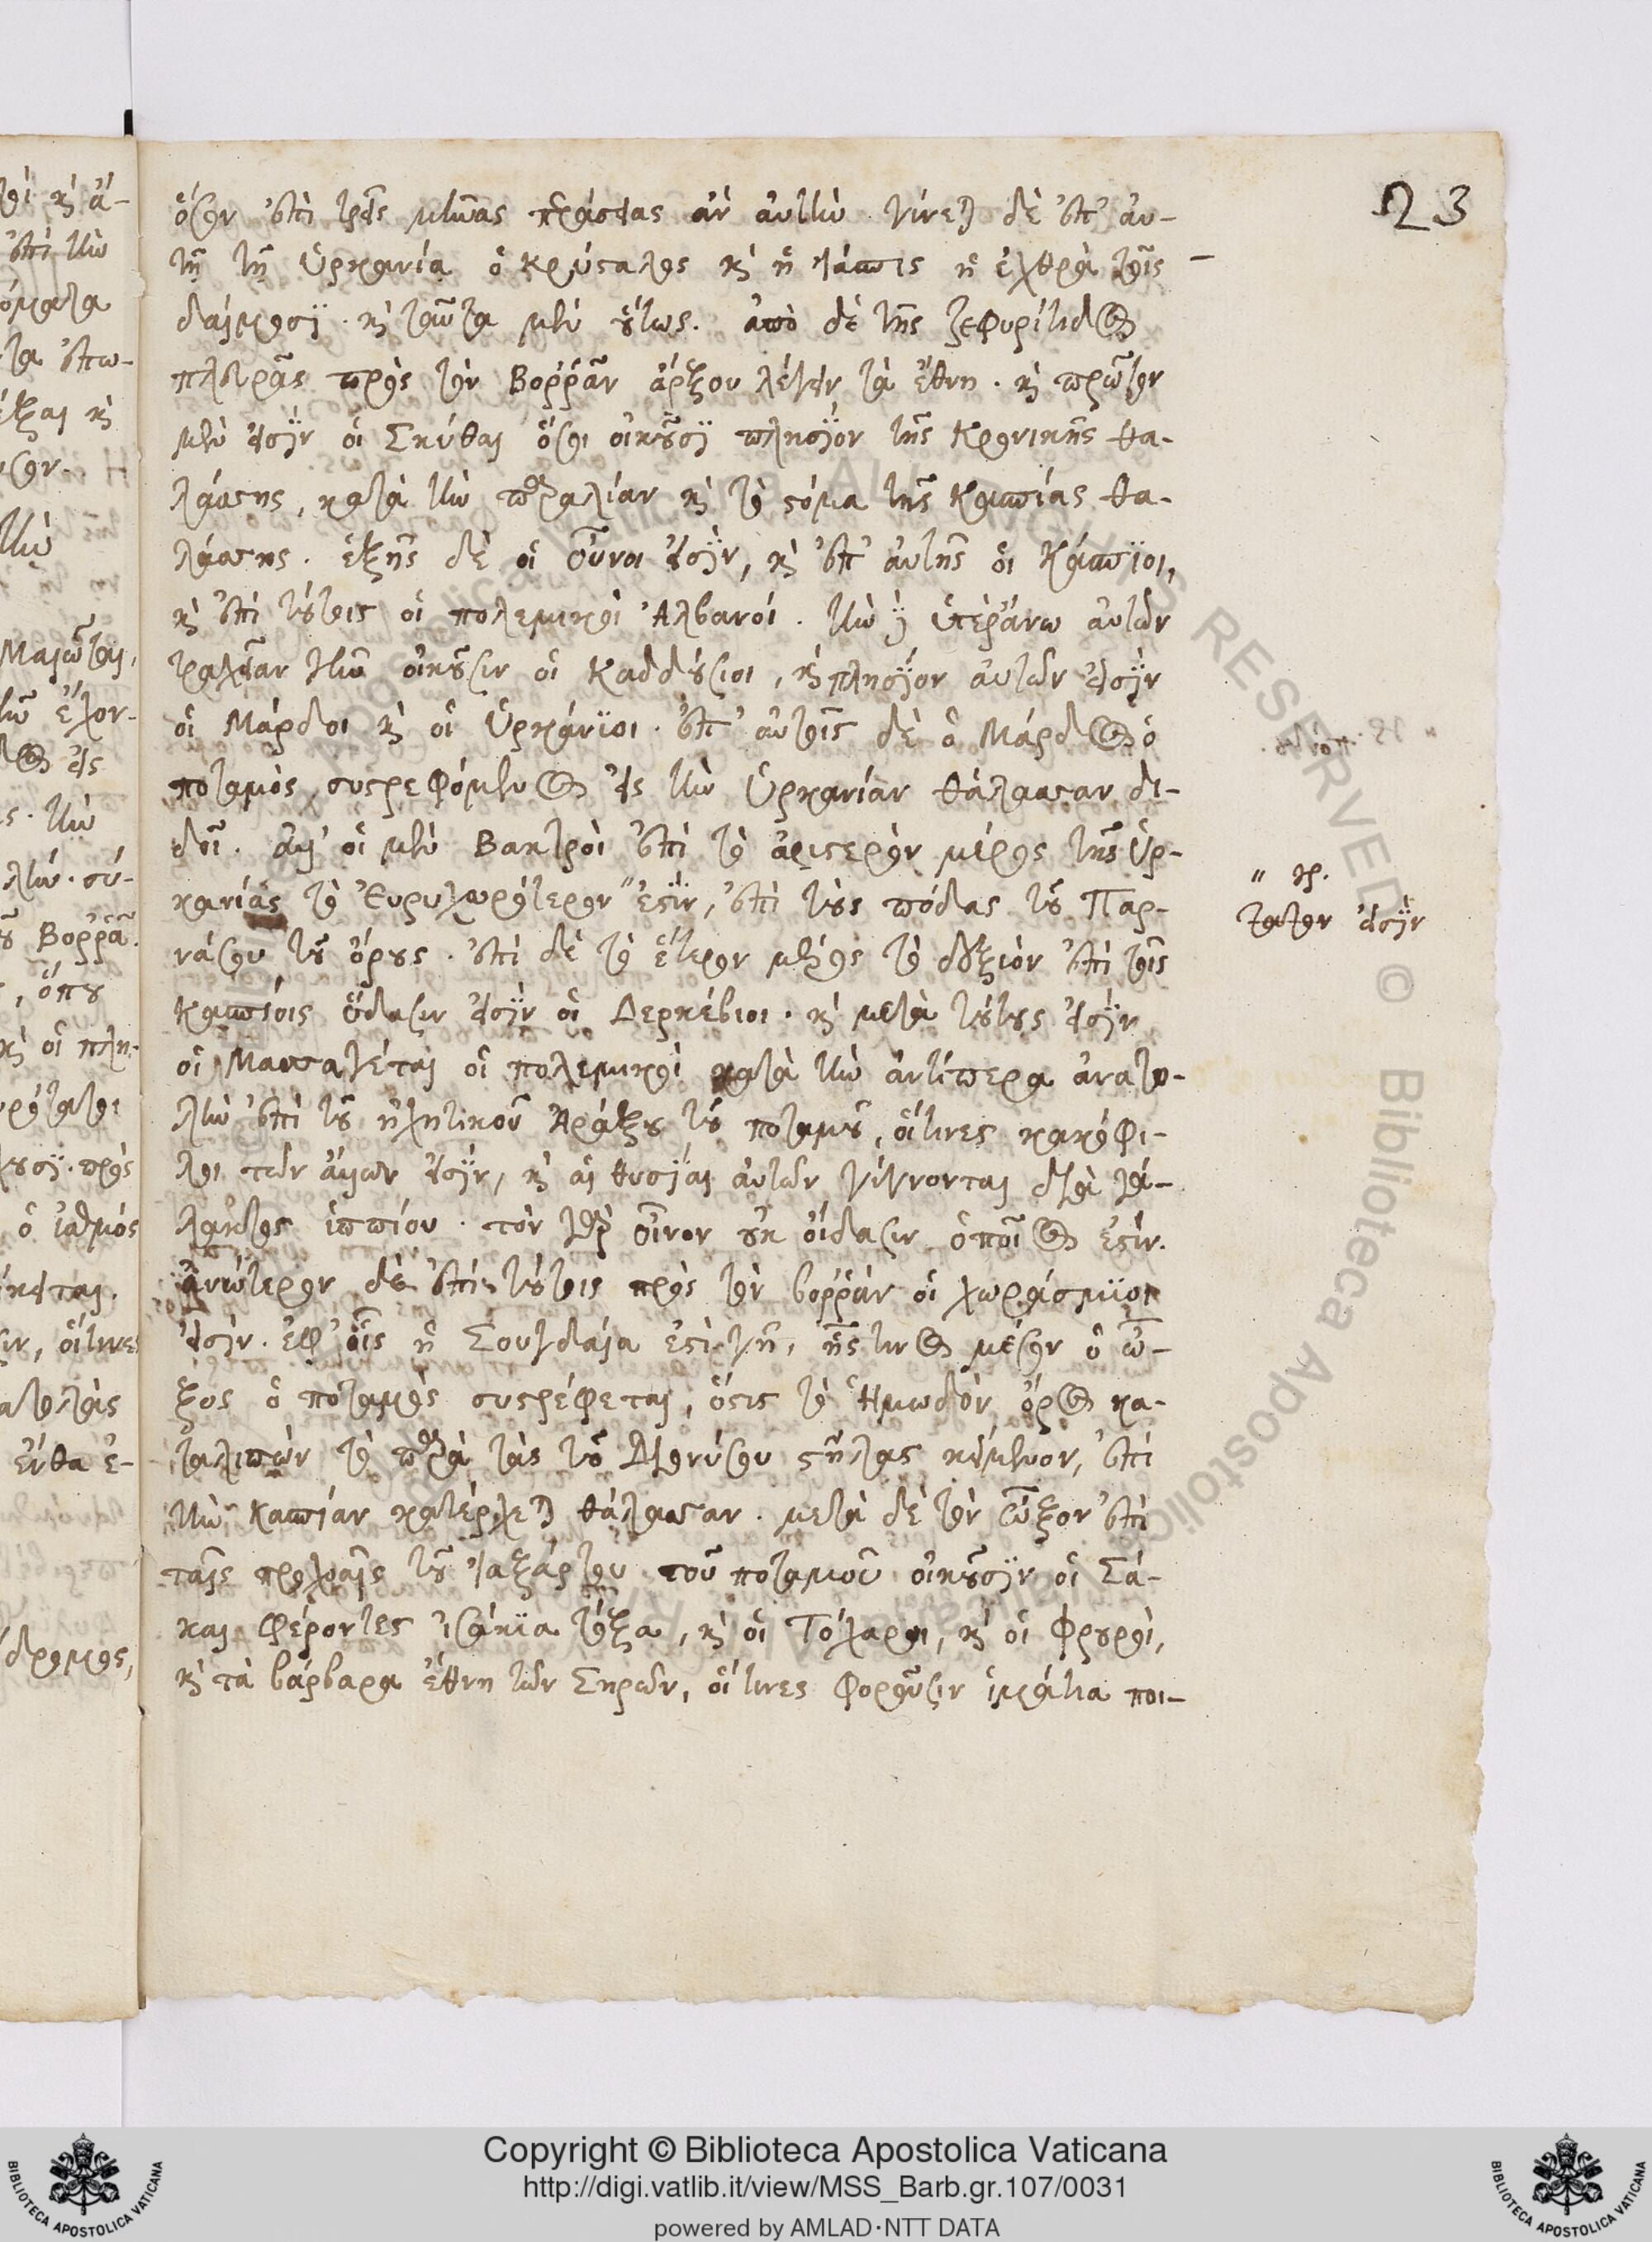 23
ὅσον ἐπὶ τρεῖς μῆνας περάσειας ἂν αὐτήν. γίνεται δὲ ἐπ' αὐ-
τῇ τῇ Ὑρκανίᾳ ὁ κρύσταλος καὶ ἡ ἴασπις ἡ ἐχθρὰ τοῖς
δαίμοσι. καὶ ταῦτα μὲν οὕτως. ἀπὸ δὲ τῆς ζεφυρίτιδος
πλευρᾶς πρὸς τὸν Βορρᾶν ἄρξου λέγειν τὰ ἔθνη. καὶ πρῶτον
μὲν εἰσὶν οἱ Σκύθαι ὅσοι οἰκοῦσι πλησίον τῆς Κρονικῆς θα-
λάσσης, κατὰ τὴν παραλίαν καὶ τὸ στόμα τῆς Κασπίας θα-
λάσσης. ἑξῆς δὲ οἱ Οὖννοι εἰσίν, καὶ ἐπ' αὐτῆς οἱ Κάσπιοι,
καὶ ἐπὶ τούτοις οἱ πολεμικοὶ Ἀλβανοί. τὴν δὲ ὑπεράνω αὐτῶν
τραχεῖαν γῆν οἰκοῦσιν οἱ Καδδούσιοι, καὶ πλησίον αὐτῶν εἰσὶν
οἱ Μάρδοι καὶ οἱ Ὑρκάνιοι. ἐπ' αὐτοῖς δὲ ὁ Μάρδος ὁ
ποταμὸς συστρεφόμενος εἰς τὴν Ὑρκανίαν θάλασσαν δι-
δοῖ. ἀλλ' οἱ μὲν Βακτροὶ ἐπὶ τὸ ἀριστερὸν μέρος τῆς Ὑρ-
κανίας τὸ Εὐρυχωρότερον" ἐστίν, ἐπὶ τοὺς πόδας τοῦ Παρ-
νάσου τοῦ ὄρους. ἐπὶ δὲ τὸ ἕτερον μέρος τὸ δεξιὸν ἐπὶ τοῖς
Κασπίοις ὕδασιν εἰσὶν οἱ Δερκέβιοι. καὶ μετὰ τούτους εἰσὶν
οἱ Μασσαγέται οἱ πολεμικοὶ κατὰ τὴν ἀντίπερα ἀνατο-
λὴν ἐπὶ τοῦ ἠχητικοῦ Ἀράξου τοῦ ποταμοῦ, οἵτινες κακόφι-
λοι τῶν ἄλλων εἰσίν, καὶ αἱ θυσίαι αὐτῶν γίγνονται διὰ γά-
λακτος ἱππίου. τὸν γὰρ οἶνον οὐκ οἴδασιν ὁποῖος ἐστίν.
ἀνώτερον δὲ ἐπὶ τούτοις πρὸς τὸν βορρᾶν οἱ χωράσμιοι
εἰσίν. ἐφ' οἷς ἡ Σουγδαία ἐστὶ γῆ, ἧς τινος μέσον ὁ ὦ-
ξος ὁ ποταμὸς συστρέφεται, ὅστις τὸ Ἠμωδὸν ὄρος κα-
ταλιπὼν τὸ παρὰ τὰς τοῦ Διονύσου στήλας κείμενον, ἐπὶ
τὴν Κασπίαν κατέρχεται θάλασσαν. μετὰ δὲ τὸν ὦξον ἐπὶ
ταῖς προχοαῖς τοῦ Ἰαξάρτου τοῦ ποταμοῦ οἰκοῦσιν οἱ Σά-
και φέροντες ἰσάκια τόξα, καὶ οἱ Τόχαροι, καὶ οἱ Φρουροὶ,
καὶ τὰ βάρβαρα ἔθνη τῶν Σηρῶν, οἵτινες φοροῦσιν ἱμάτια ποι-
" γρ.
τατον εἰσὶν
Copyright © Biblioteca Apostolica Vaticana
http://digi.vatlib.it/view/MSS_Barb.gr.107/0031
powered by AMLAD·NTT DATA